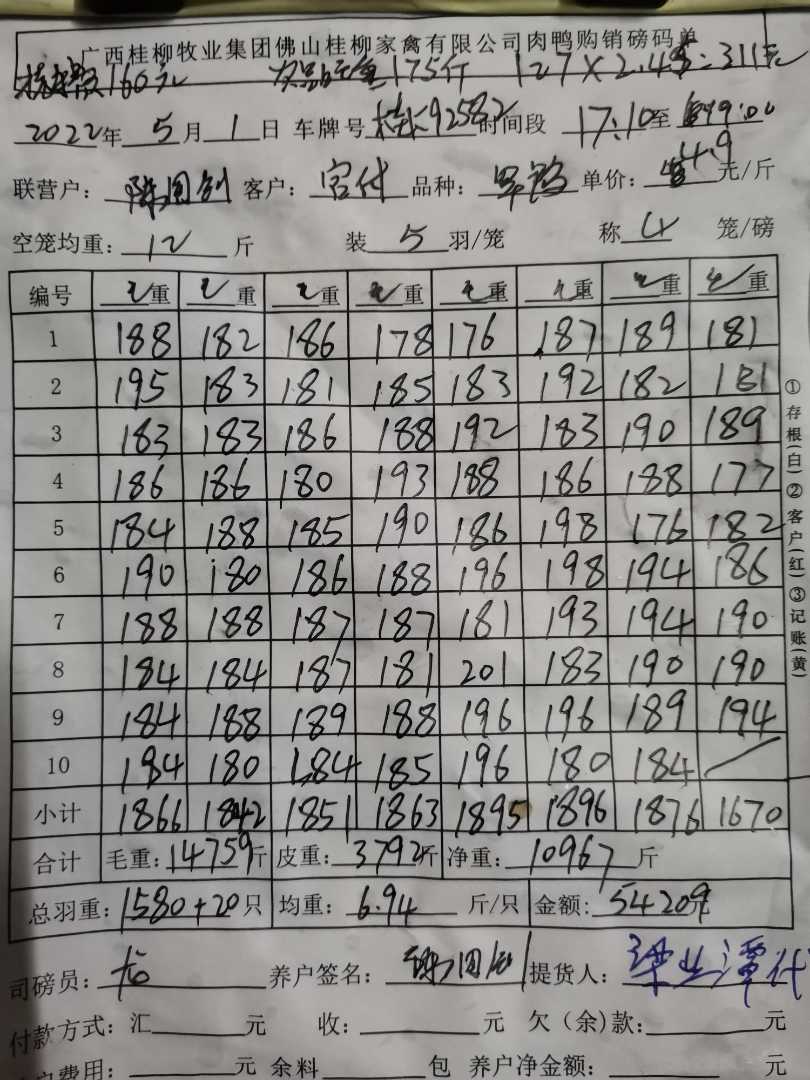 广西桂柳牧业集团佛山桂柳家禽有限公司肉鸭购销磅码单
160元 175斤 127×2.45=311元
2022年 5月 1日 车牌号 92582 时间段 17:10至 19:00
联营户: 客户: 品种: 单价: 4.9 元/斤
空笼均重: 12 斤 装 5 羽/笼 称 4 笼/磅
编号 重 重 重 重 重 重 重 重
1 188 182 186 178 176 187 189 181
2 195 183 181 185 183 192 182 181
3 183 183 186 188 192 183 190 189
4 186 186 180 193 188 186 188 177
5 184 188 185 190 186 198 176 182
6 190 180 186 188 196 198 194 186
7 188 188 187 187 181 193 194 190
8 184 184 187 181 201 183 190 190
9 184 188 189 188 196 196 189 194
10 184 180 184 185 196 180 184
小计 1866 1842 1851 1863 1895 1896 1876 1670
合计 毛重: 14759斤 皮重: 3792斤 净重: 10967 斤
总羽重: 1580+20只 均重: 6.94 斤/只 金额: 54209元
司磅员: 养户签名: 提货人:
付款方式: 汇 元 收: 元 欠(余)款: 元
户费用: 元 余料 包 养户净金额: 元
①存根(白)②客户(红)③记账(黄)